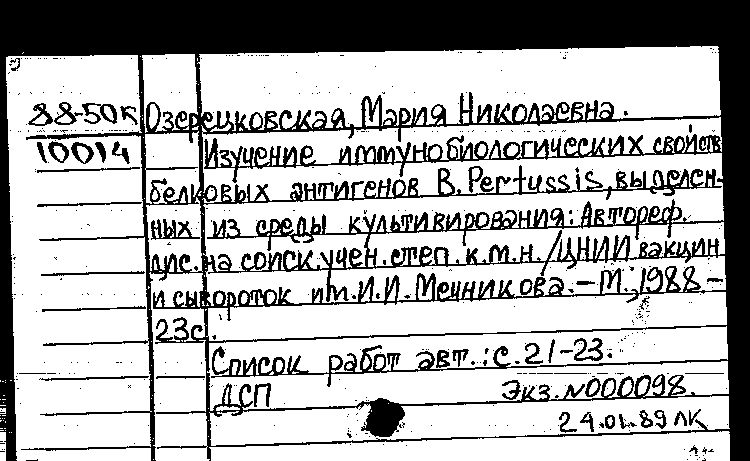 88-50к Озерецковская, Мария Николаевна.
10014 Изучение иммунобиологических свойств
белковых антигенов B. Pertussis, выделен-
ных из среды культивирования: Автореф.
дис. на соиск. учен. степ. к.м.н. /ЦНИИ вакцин
и сывороток им. И.И. Мечникова. – М., 1988. –
23с.
Список работ авт.: с. 21-23.
ДСП Экз. N000098.
24.01.89 ЛК